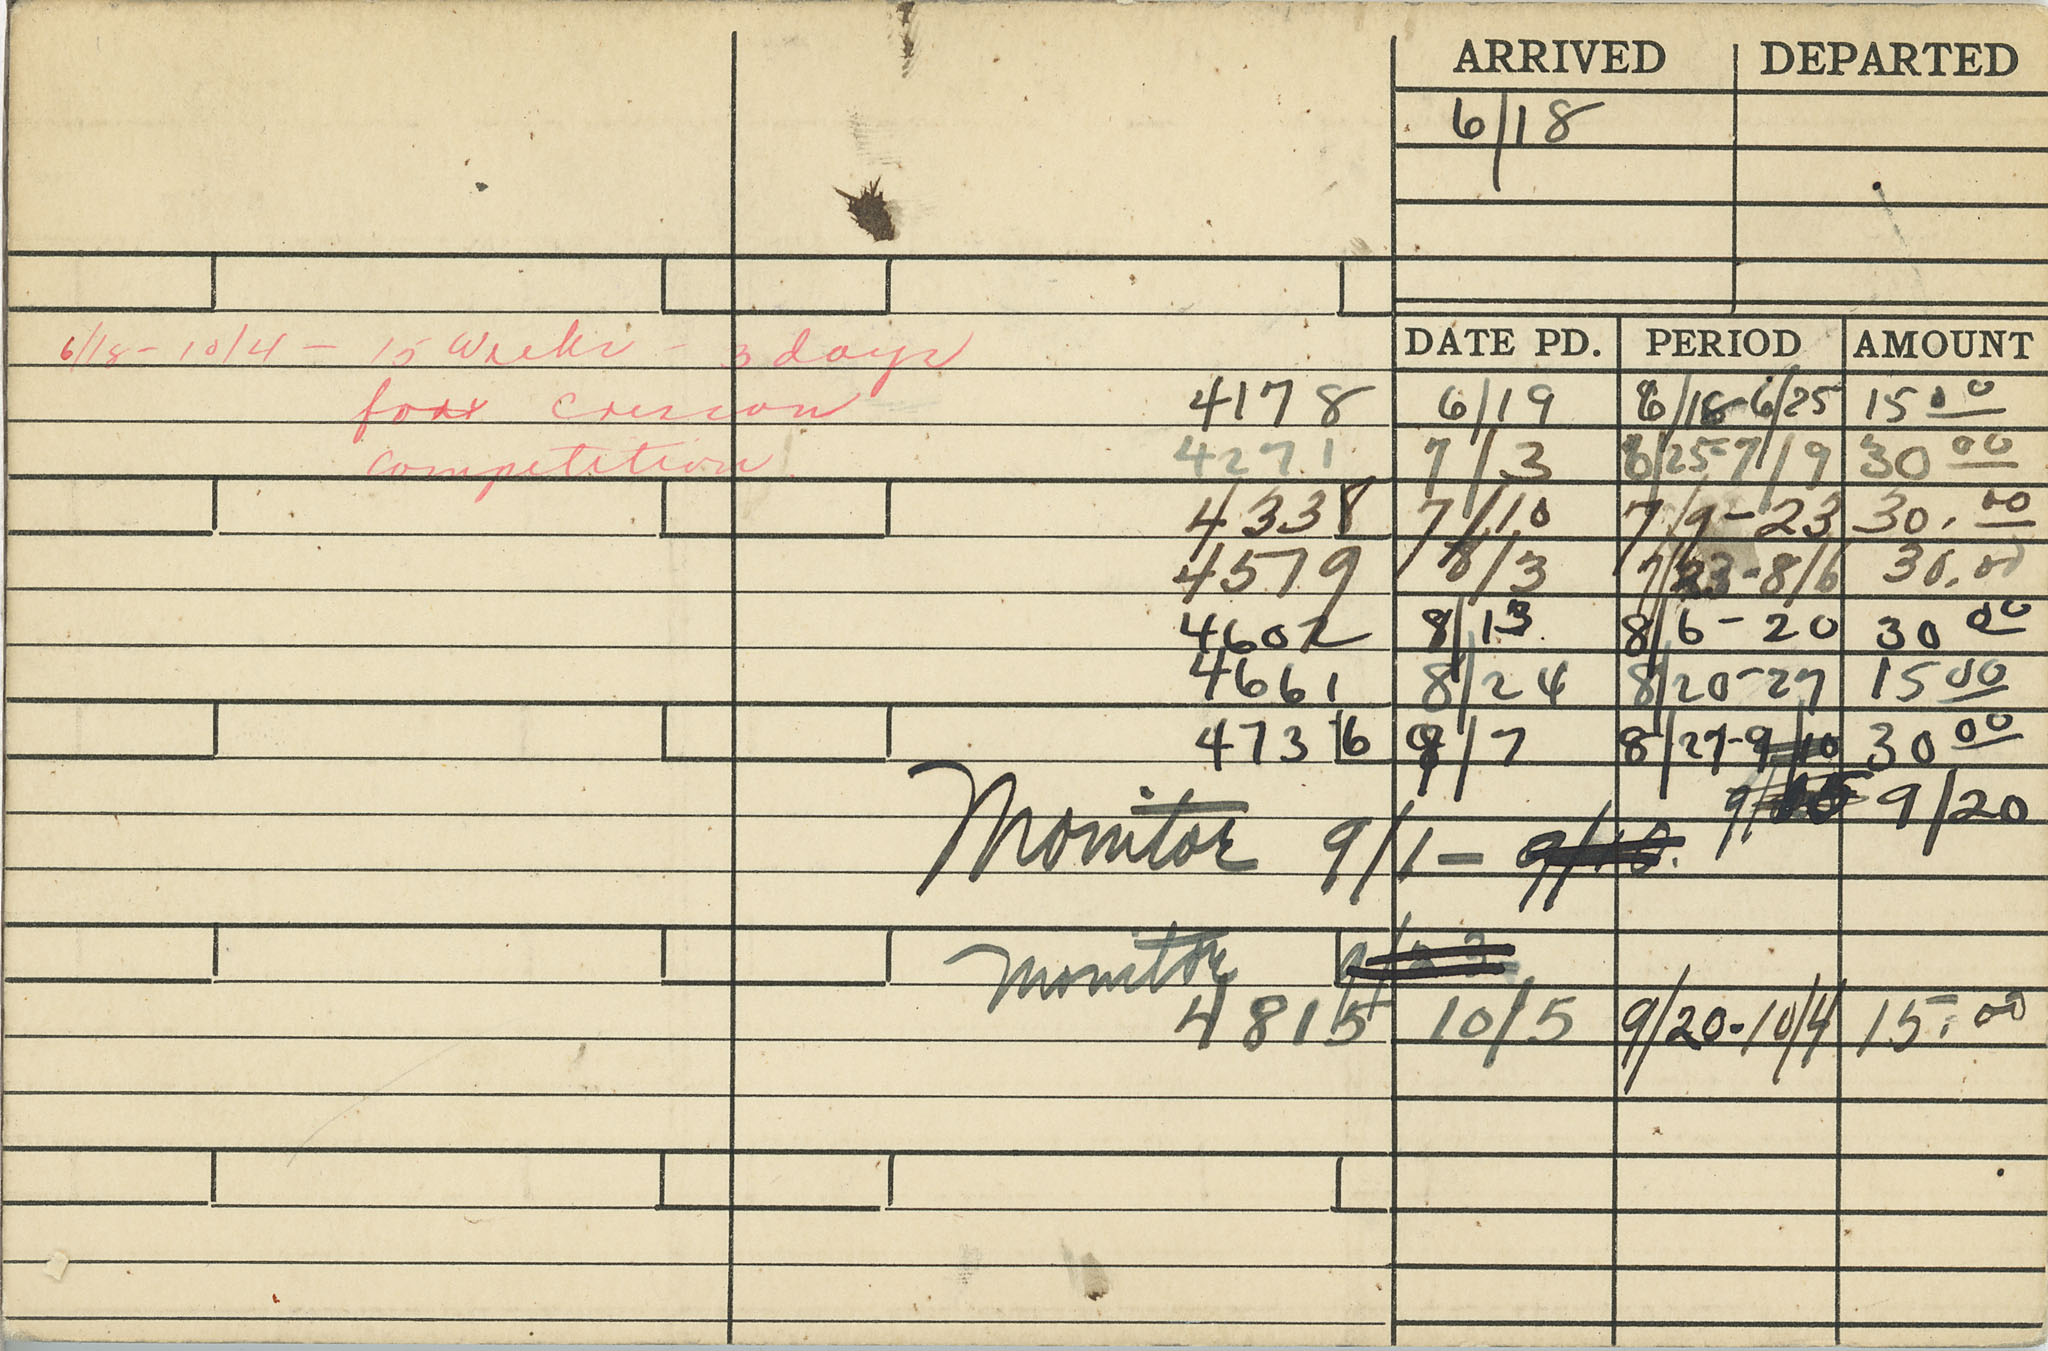 ARRIVED DEPARTED
6/18
6/18 - 10/4 - 15 Weeks - 3 days
DATE PD. PERIOD AMOUNT
for Cresson
4178 6/19 6/18-6/25 15.00
competition
4271 7/3 6/25-7/9 30 00
4338 7/10 7/9-23 30.00
4579 8/3 7/23-8/6 30.00
4602 8/13 8/6-20 30 00
4661 8/24 8/20-27 15 00
4736 9/7 8/27-9/10 30 00
9/15 9/20
Monitor 9/1 - 9/10.
Monitor 9/23
4815 10/5 9/20-10/4 15.00